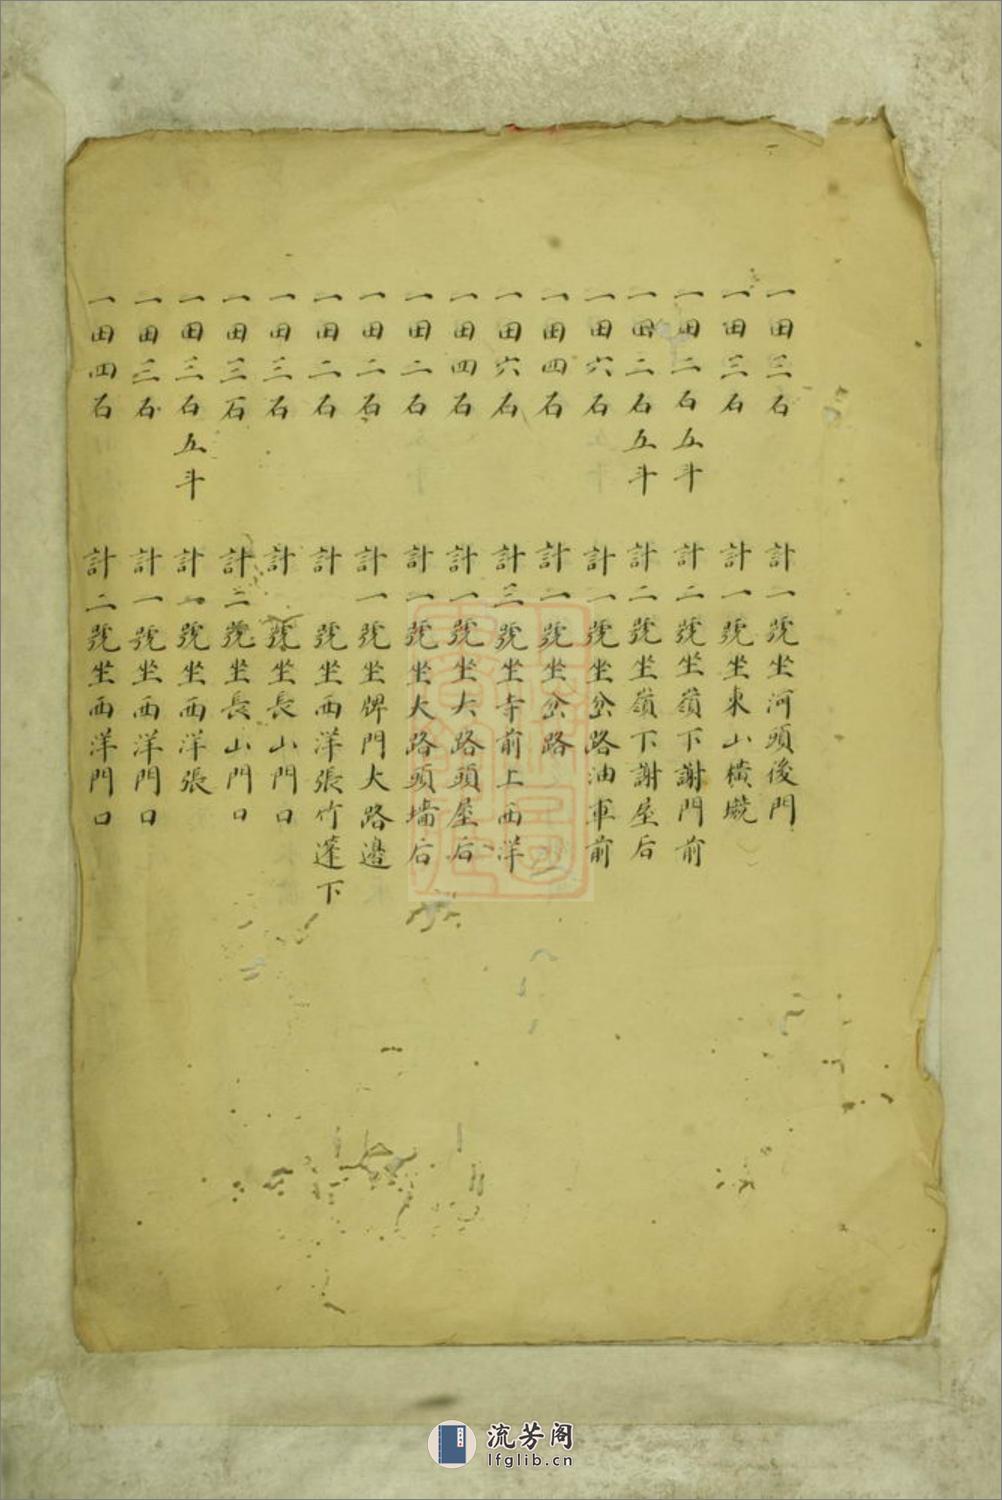 一田三石 計一號坐河頭後門
一田三石 計一號坐東山橫壠
一田二石五斗 計二號坐嶺下謝門前
一田二石五斗 計二號坐嶺下謝屋后
一田六石 計一號坐岔路油車前
一田四石 計一號坐岔路
一田六石 計三號坐寺前上西洋
一田四石 計一號坐大路頭屋后
一田二石 計一號坐大路頭墻后
一田二石 計一號坐牌門大路邉
一田二石 計 號坐西洋張竹蓬下
一田三石 計 號坐長山門口
一田三石 計二號坐長山門口
一田三石五斗 計一號坐西洋張
一田三石 計一號坐西洋門口
一田四石 計二號坐西洋門口
流芳阁
lfglib.cn